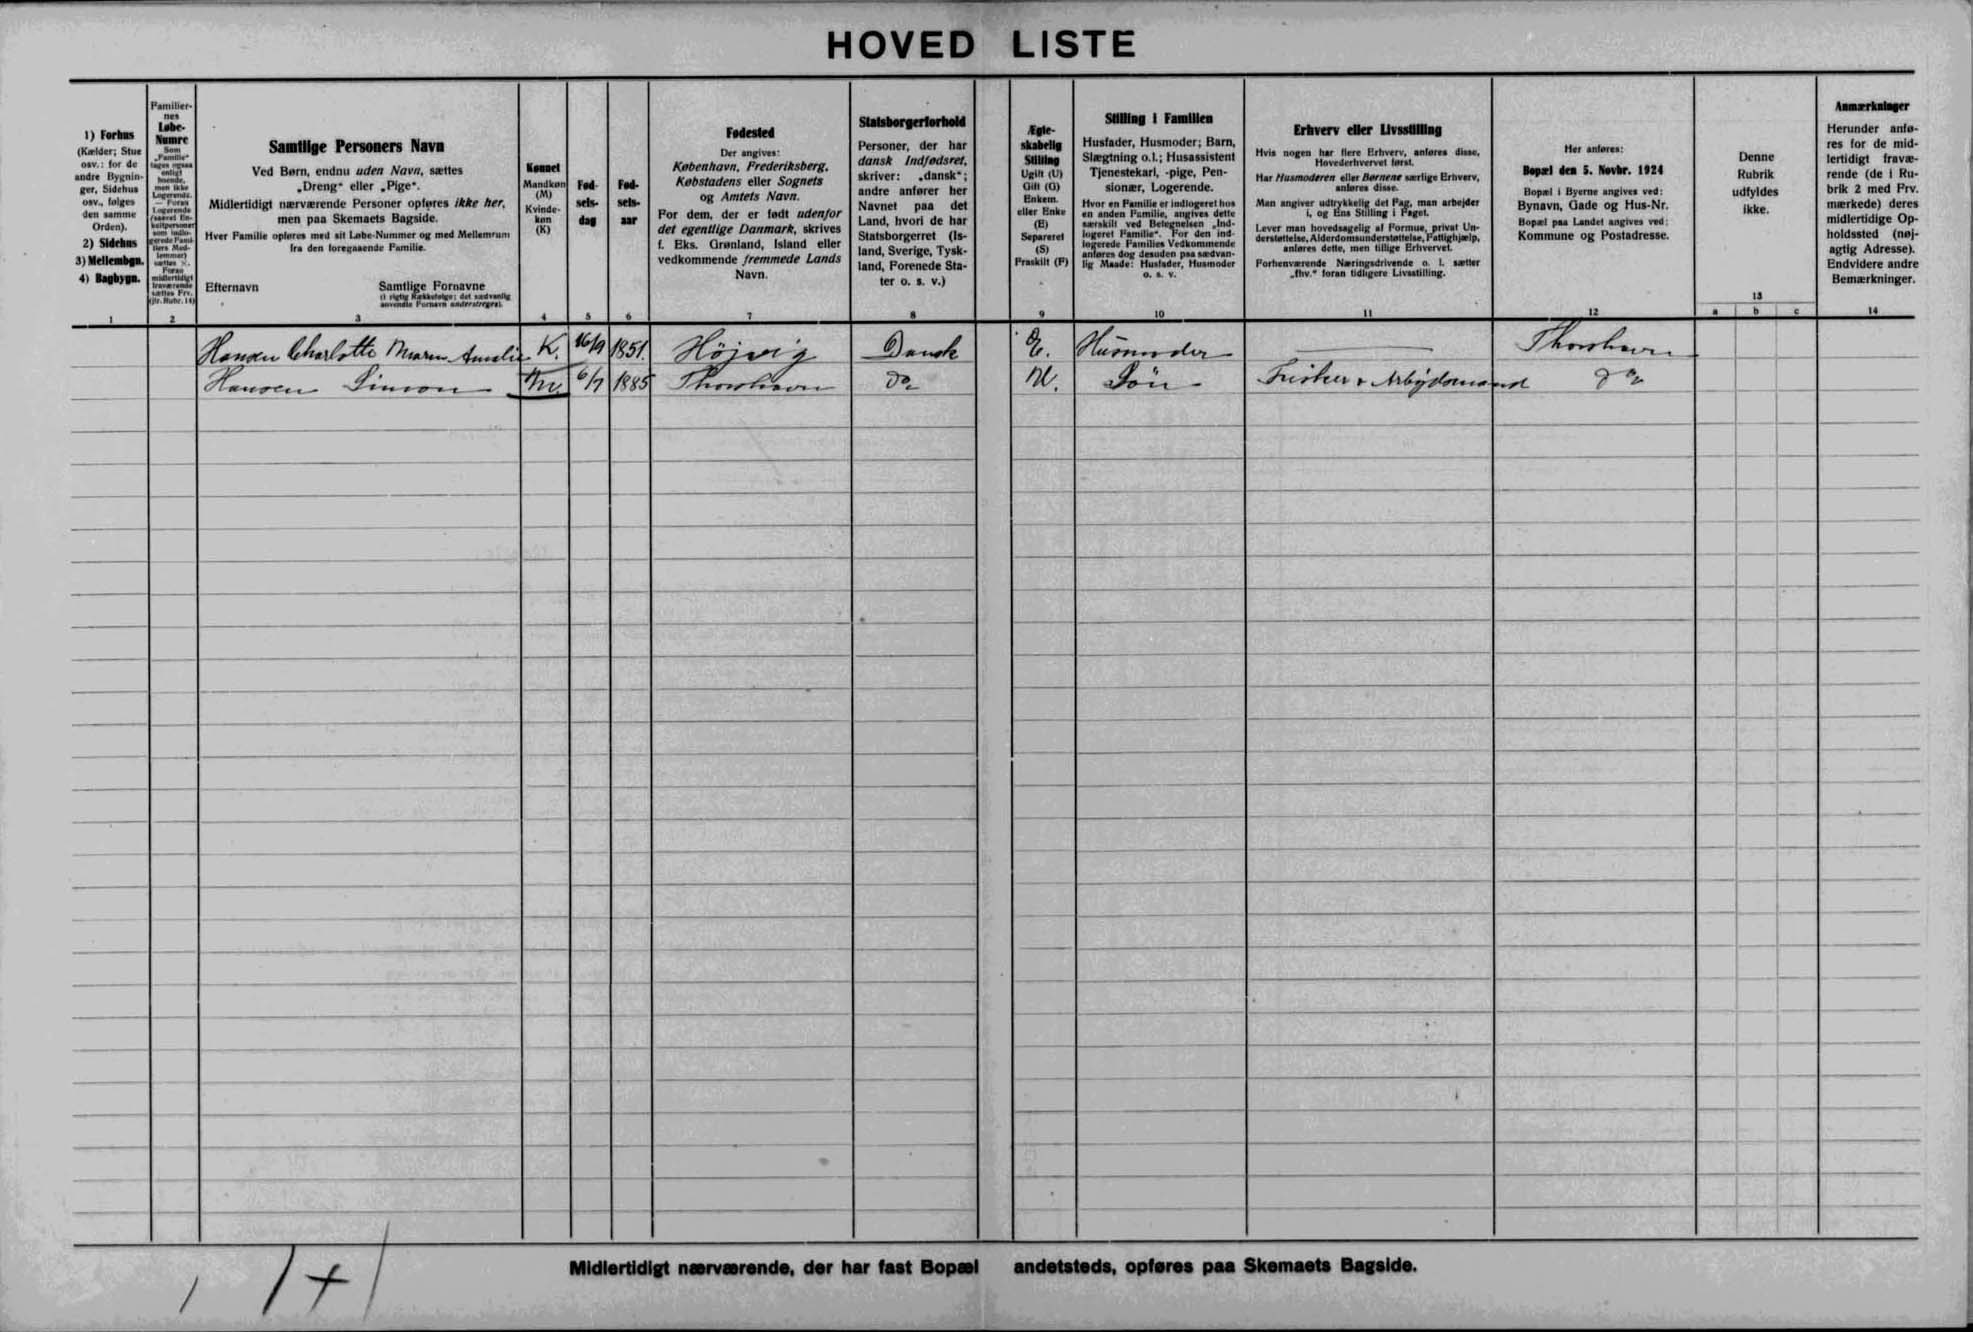 HOVED LISTE
1) Forhus
(Kælder; Stue
osv.: for de
andre Bygnin-
ger, Sidehus
osv., følges
den samme
Orden).
2) Sidehus
3) Mellembgn.
4) Bagbygn.
1
Familier-
nes
Løbe-
Numre
Som
„Familie"
tages ogsaa
enligt
boende,
men ikke
Logerende.
— Foran
Logerende
(saavel En-
keltpersoner
som indlo-
gerede Fami-
liers Med-
lemmer)
sættes ×.
Foran
midlertidigt
fraværende
sættes Frv.
(jfr. Rubr. 14)
2
Samtlige Personers Navn
Ved Børn, endnu uden Navn, sættes
„Dreng" eller „Pige".
Midlertidigt nærværende Personer opføres ikke her,
men paa Skemaets Bagside.
Hver Familie opføres med sit Løbe-Nummer og med Mellemrum
fra den foregaaende Familie.
Efternavn Samtlige Fornavne
(i rigtig Rækkefølge; det sædvanlig
anvendte Fornavn understreges).
3
Kønnet
Mandkøn
(M)
Kvinde-
køn
(K)
4
Fød-
sels-
dag
5
Fød-
sels-
aar
6
Fødested
Der angives:
København, Frederiksberg,
Købstadens eller Sognets
og Amtets Navn.
For dem, der er født udenfor
det egentlige Danmark, skrives
f. Eks. Grønland, Island eller
vedkommende fremmede Lands
Navn.
7
Statsborgerforhold
Personer, der har
dansk Indfødsret,
skriver: „dansk";
andre anfører her
Navnet paa det
Land, hvori de har
Statsborgerret (Is-
land, Sverige, Tysk-
land, Forenede Sta-
ter o. s. v.)
8
Ægte-
skabelig
Stilling
Ugift (U)
Gift (G)
Enkem.
eller Enke
(E)
Separeret
(S)
Fraskilt (F)
9
Stilling i Familien
Husfader, Husmoder; Barn,
Slægtning o.l.; Husassistent
Tjenestekarl, -pige, Pen-
sionær, Logerende.
Hvor en Familie er indlogeret hos
en anden Familie, angives dette
særskilt ved Betegnelsen „Ind-
logeret Familie". For den ind-
logerede Families Vedkommende
anføres dog desuden paa sædvan-
lig Maade: Husfader, Husmoder
o. s. v.
10
Erhverv eller Livsstilling
Hvis nogen har flere Erhverv, anføres disse,
Hovederhvervet først.
Har Husmoderen eller Børnene særlige Erhverv,
anføres disse.
Man angiver udtrykkelig det Fag, man arbejder
i, og Ens Stilling i Faget.
Lever man hovedsagelig af Formue, privat Un-
derstøttelse, Alderdomsunderstøttelse, Fattighjælp,
anføres dette, men tillige Erhvervet.
Forhenværende Næringsdrivende o. l. sætter
„fhv." foran tidligere Livsstilling.
11
Her anføres:
Bopæl den 5. Novbr. 1924
Bopæl i Byerne angives ved:
Bynavn, Gade og Hus-Nr.
Bopæl paa Landet angives ved:
Kommune og Postadresse.
12
Denne
Rubrik
udfyldes
ikke.
13
a b c
Anmærkninger
Herunder anfø-
res for de mid-
lertidigt fravæ-
rende (de i Ru-
brik 2 med Frv.
mærkede) deres
midlertidige Op-
holdssted (nøj-
agtig Adresse).
Endvidere andre
Bemærkninger.
14
Hansen Charlotte Maren Amalie K. 16/9 1851. Højvig Dansk E. Husmoder — Thorshavn
Hansen Simon M. 6/7 1885 Thorshavn do U. Søn Fisker & Arbejdsmand do
Midlertidigt nærværende, der har fast Bopæl andetsteds, opføres paa Skemaets Bagside.
1 1+1